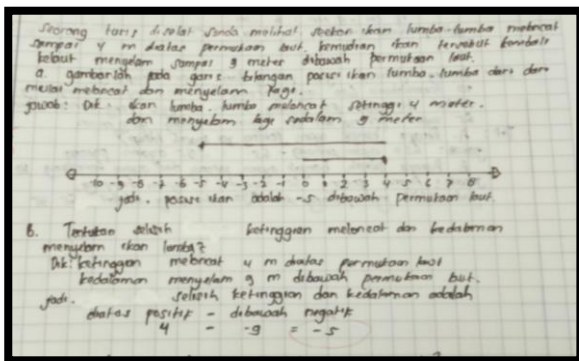 Seorang turis diselat sunda melihat seekor ikan lumba-lumba meloncat
sampai 4 m diatas permukaan laut. kemudian ikan tersebut kembali
kelaut menyelam sampai 9 meter dibawah permukaan laut.
a. gambarlah pada garis bilangan posisi ikan lumba-lumba dari
mulai meloncat dan menyelam lagi.
jawab: Dik. ikan lumba-lumba meloncat setinggi 4 meter.
dan menyelam lagi sedalam 9 meter
-10 -9 -8 -7 -6 -5 -4 -3 -2 -1 0 1 2 3 4 5 6 7 8
jadi. posisi ikan adalah -5 dibawah permukaan laut.
B. Tentukan selisih ketinggian meloncat dan kedalaman
menyelam ikan
Dik: ketinggian meloncat 4 m diatas permukaan laut
kedalaman menyelam 9 m dibawah permukaan laut.
jadi. selisih ketinggian dan kedalaman adalah
diatas positif - dibawah negatif
4 - -9 = -5